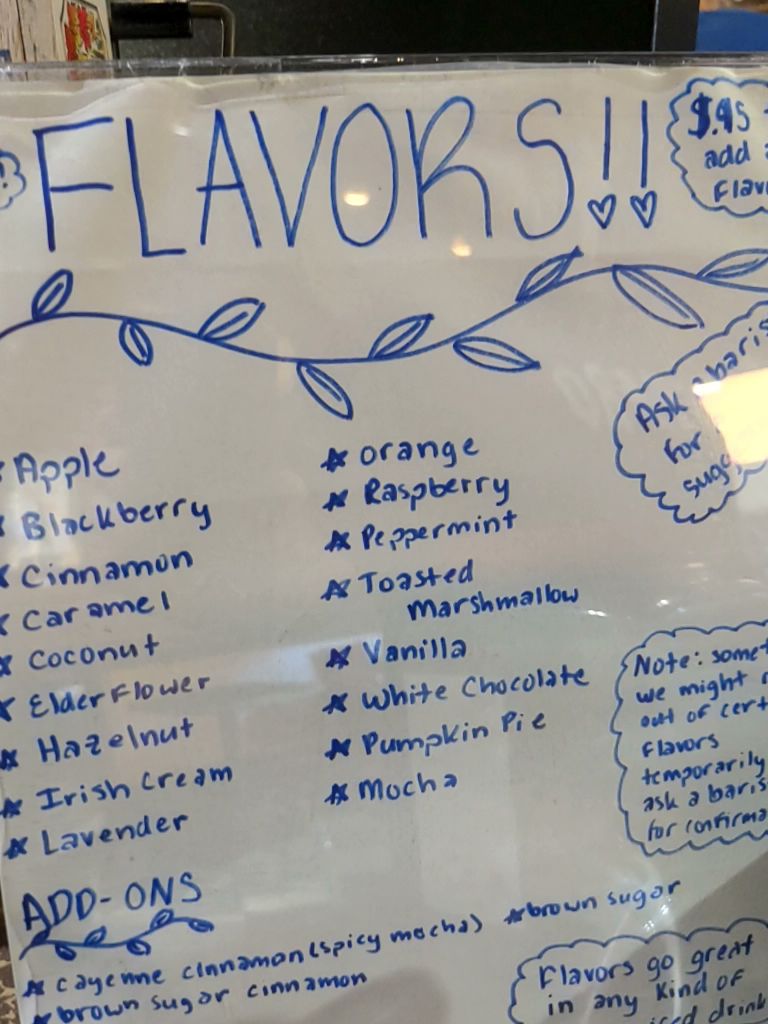 FLAVORS!!
$.95
add
Apple
Blackberry
Cinnamon
Caramel
Coconut
Elder Flower
Hazelnut
Irish Cream
Lavender
orange
Raspberry
Peppermint
Toasted
Marshmallow
Vanilla
White Chocolate
Pumpkin Pie
Mocha
Ask
for
Note:
we might
out of
Flavors
temporarily
ask a
for
ADD-ONS
cayenne cinnamon (spicy mocha)
brown sugar
brown sugar cinnamon
Flavors go great
in any kind of